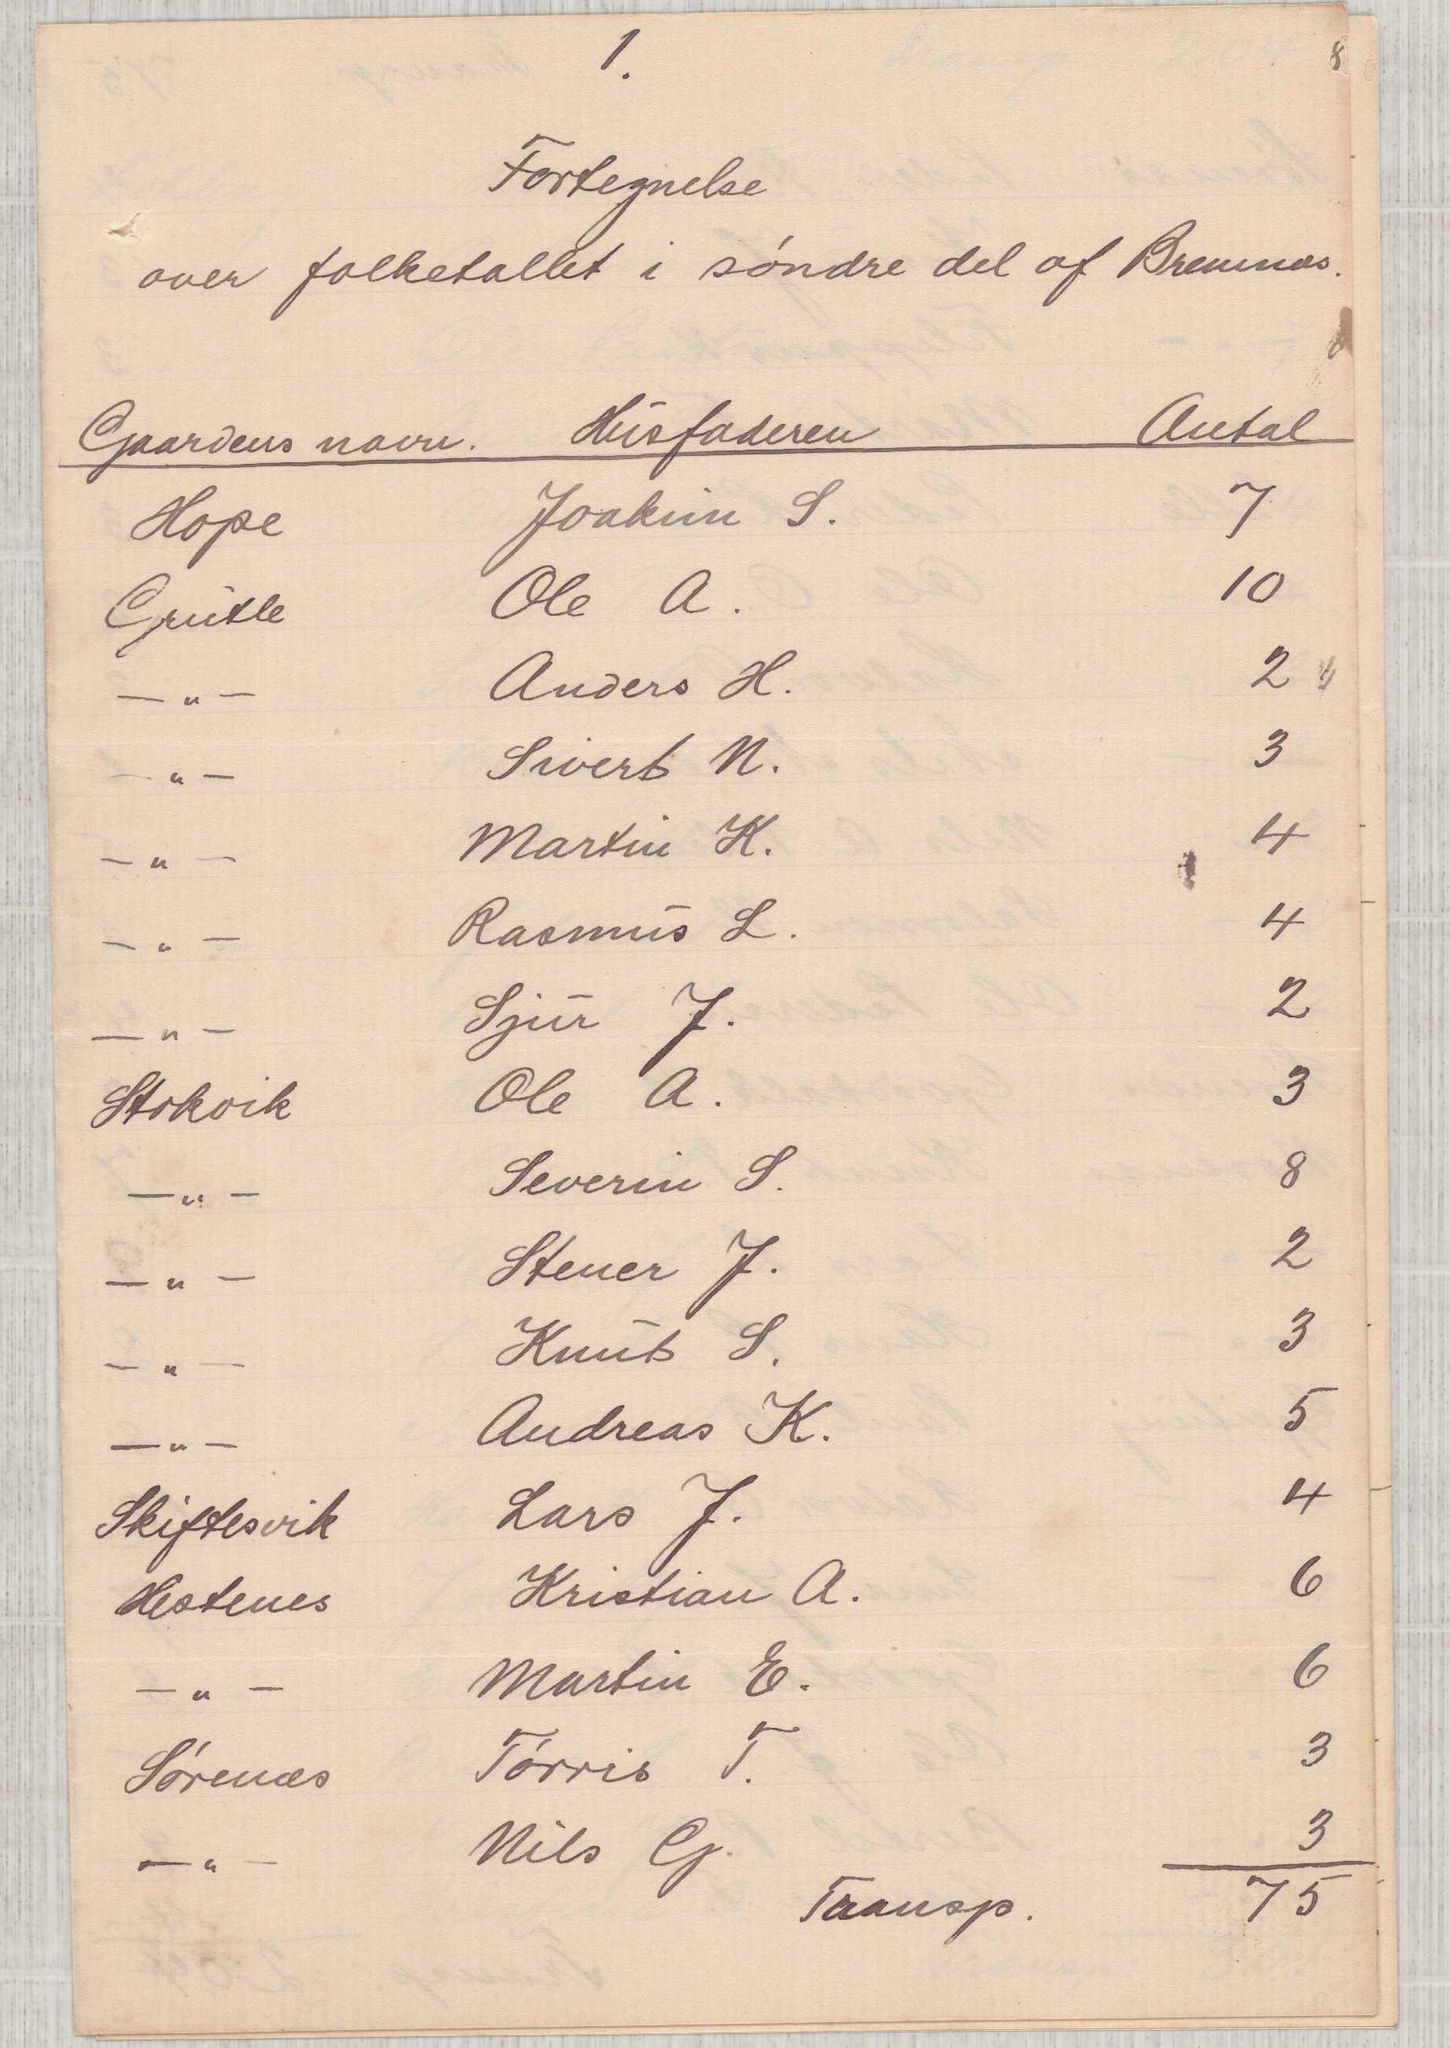 1.
8
Fortegnelse
over folketallet i søndre del af Bremnæs.
Gaardens navn. Husfaderen Antal
Hope Joakim S. 7
Grutle Ole A. 10
—"— Anders H. 2
—"— Sivert N. 3
—"— Martin K. 4
—"— Rasmus L. 4
—"— Sjur J. 2
Stokvik Ole A. 3
—"— Severin S. 8
—"— Stener J. 2
—"— Knut S. 3
—"— Andreas K. 5
Skiftesvik Lars J. 4
Hestenes Kristian A. 6
—"— Martin E. 6
Sørenæs Tørris T. 3
—"— Nils G. 3
Transp. 75